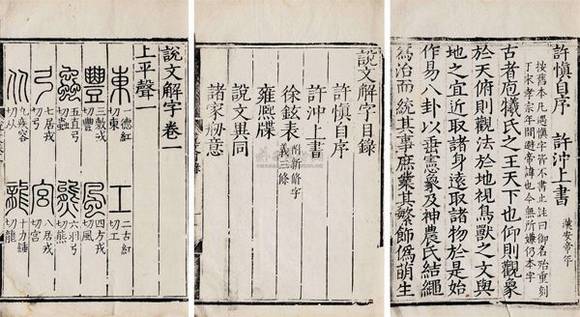 許慎自序 許沖上書
按舊本凡遇慎字皆不書止註曰御名殆重刻
于宋孝宗年間避帝諱也今無所嫌仍本字
漢安帝年
古者庖犧氏之王天下也仰則觀象
於天俯則觀法於地視鳥獸之文與
地之宜近取諸身遠取諸物於是始
作易八卦以垂憲象及神農氏結繩
爲治而統其事庶業其繁飾僞萌生
說文解字目錄
許慎自序
許沖上書
徐鉉表 附新脩字義三條
雍熙牒
說文異同
諸家刱意
說文解字 卷一
上平聲一
東 一德紅切東 工 二古紅切工
豐 三敷戎切豐 風 四方戎切風
蟲 五直弓切蟲 熊 六羽弓切熊
弓 七居戎切弓 宮 八居戎切宮
从 九疾容切从 龍 十力鍾切龍